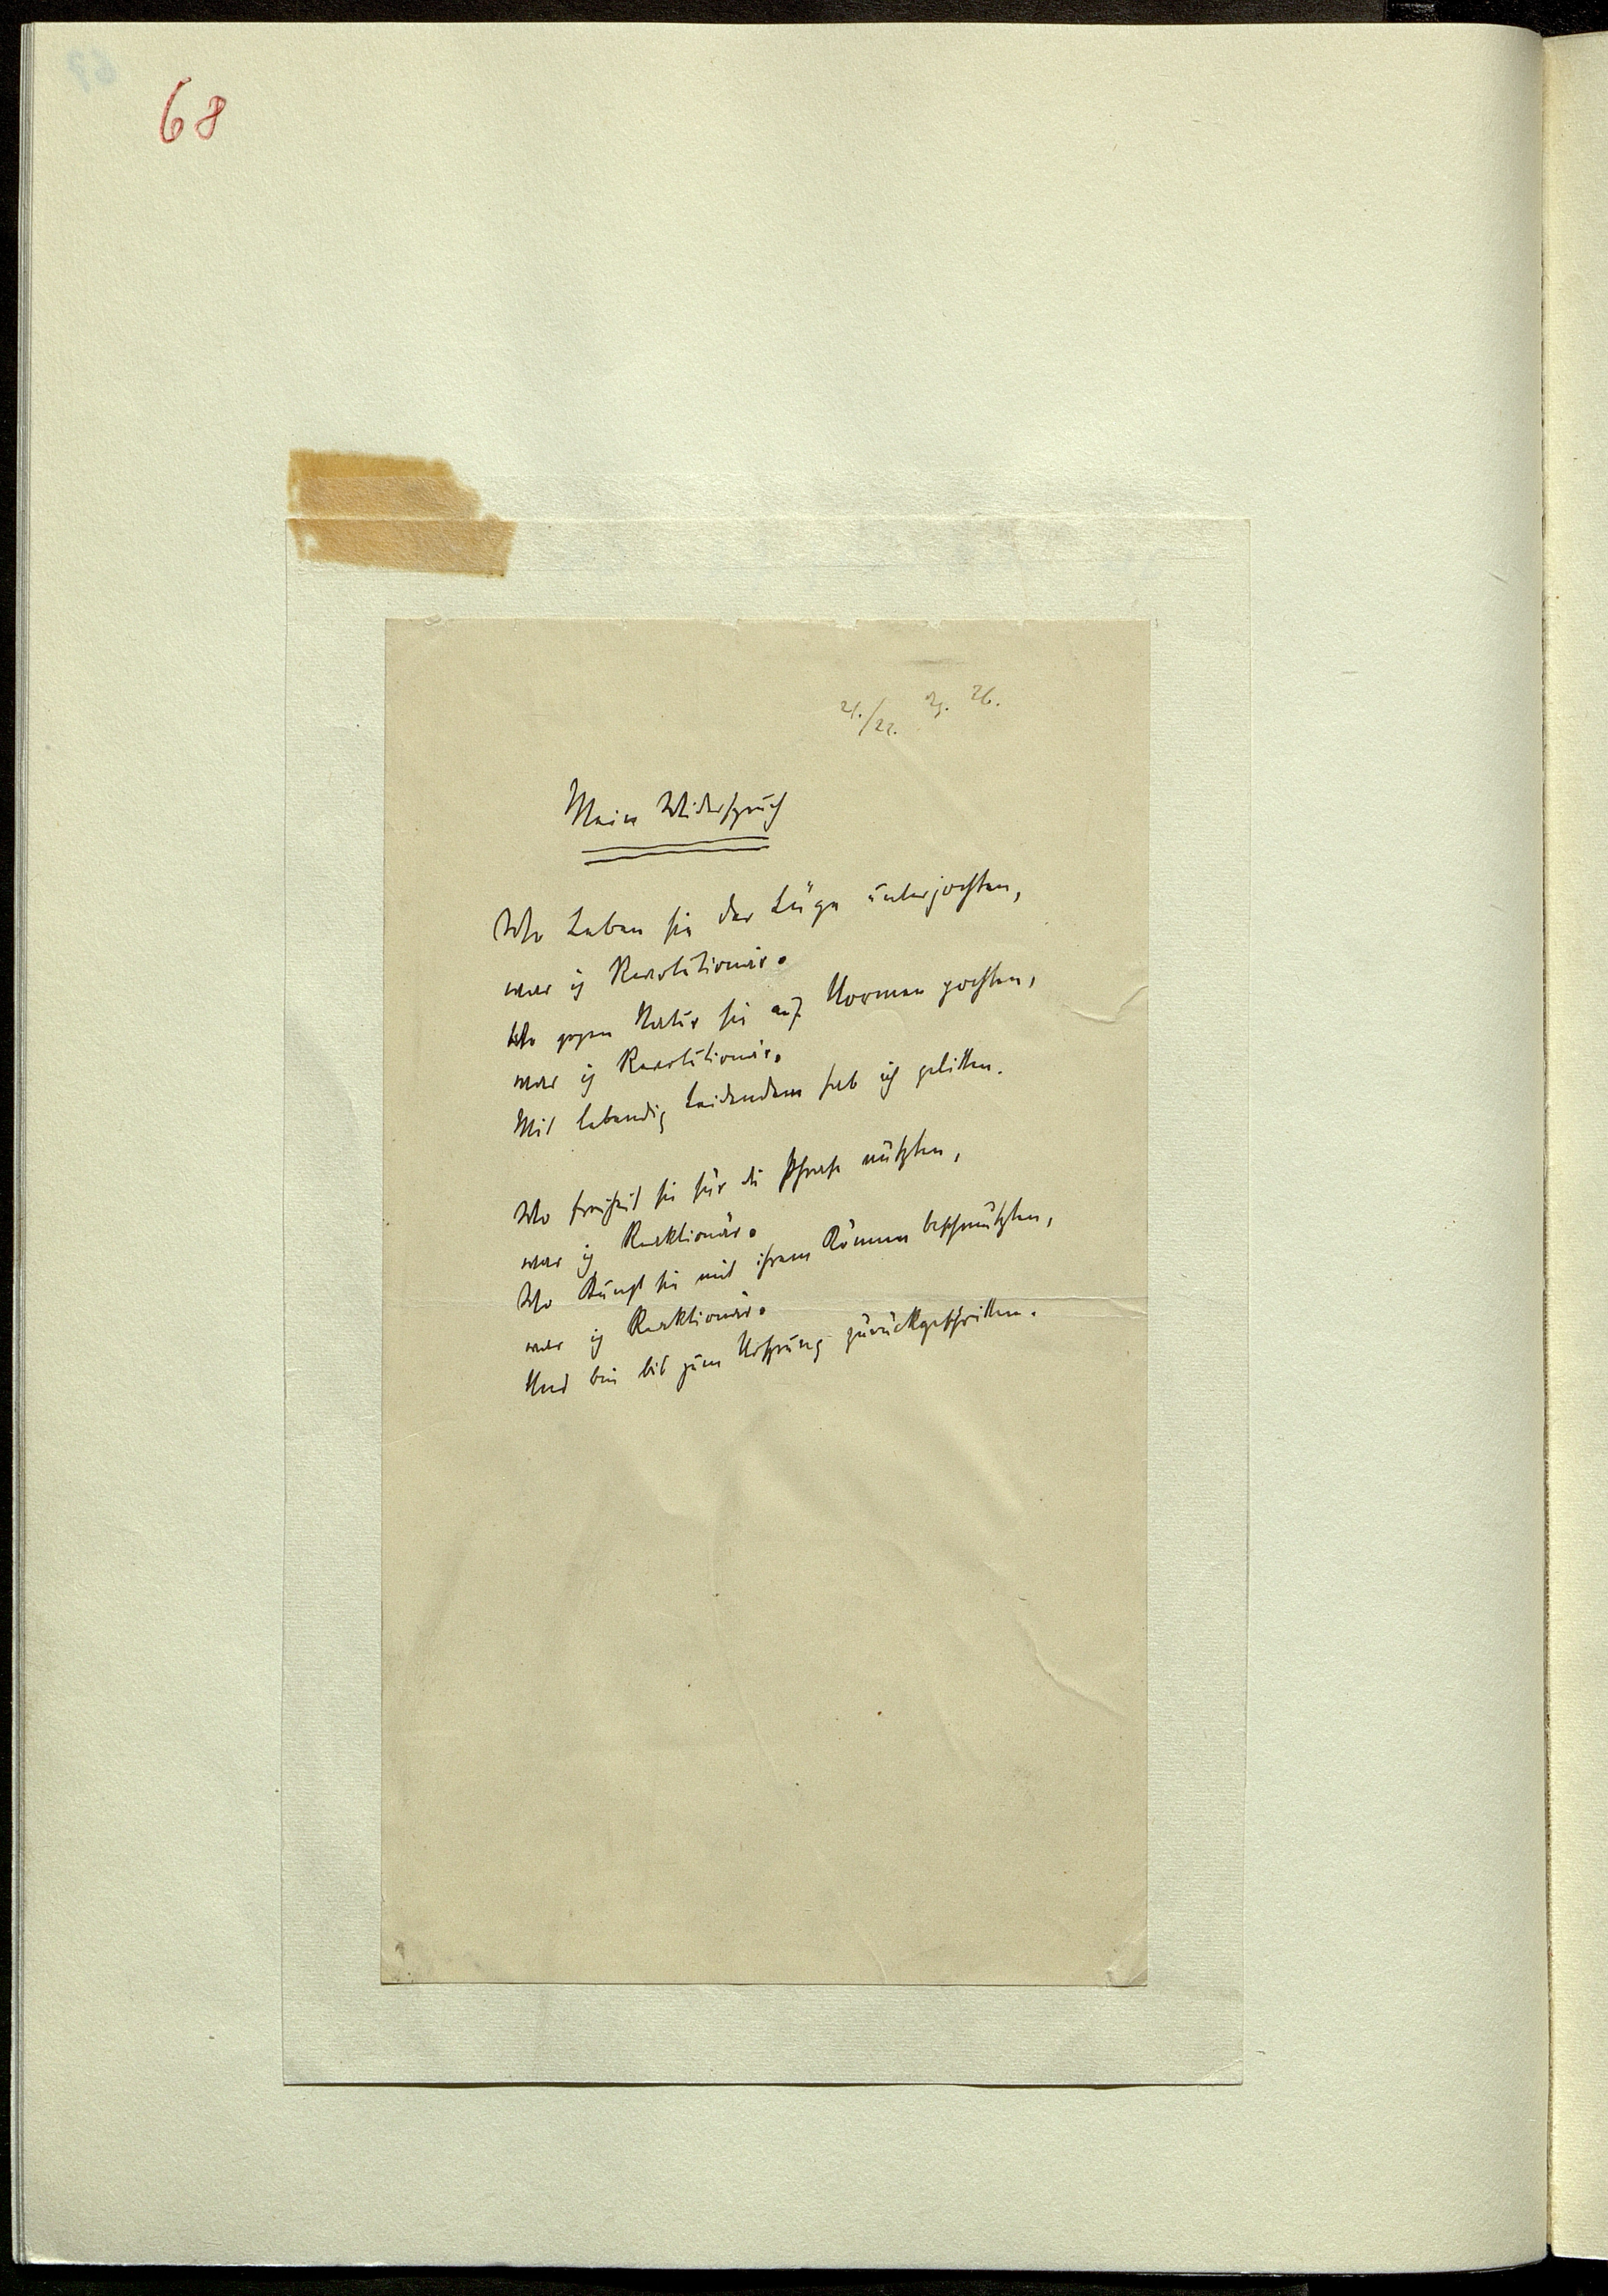 68
21./22. 26.
Mein Widerspruch
Wo Leben sie der Lüge unterjochten,
war ich Revolutionär.
Wo gegen Natur sie auf Normen pochten,
war ich Revolutionär.
Mit lebendig Leidendem hab ich gelitten.
Wo Freiheit sie für die Phrase nützten,
war ich Reaktionär.
Wo Kunst sie mit ihrem Können beschmützten,
war ich Reaktionär.
Und bin bis zum Ursprung zurückgeschritten.